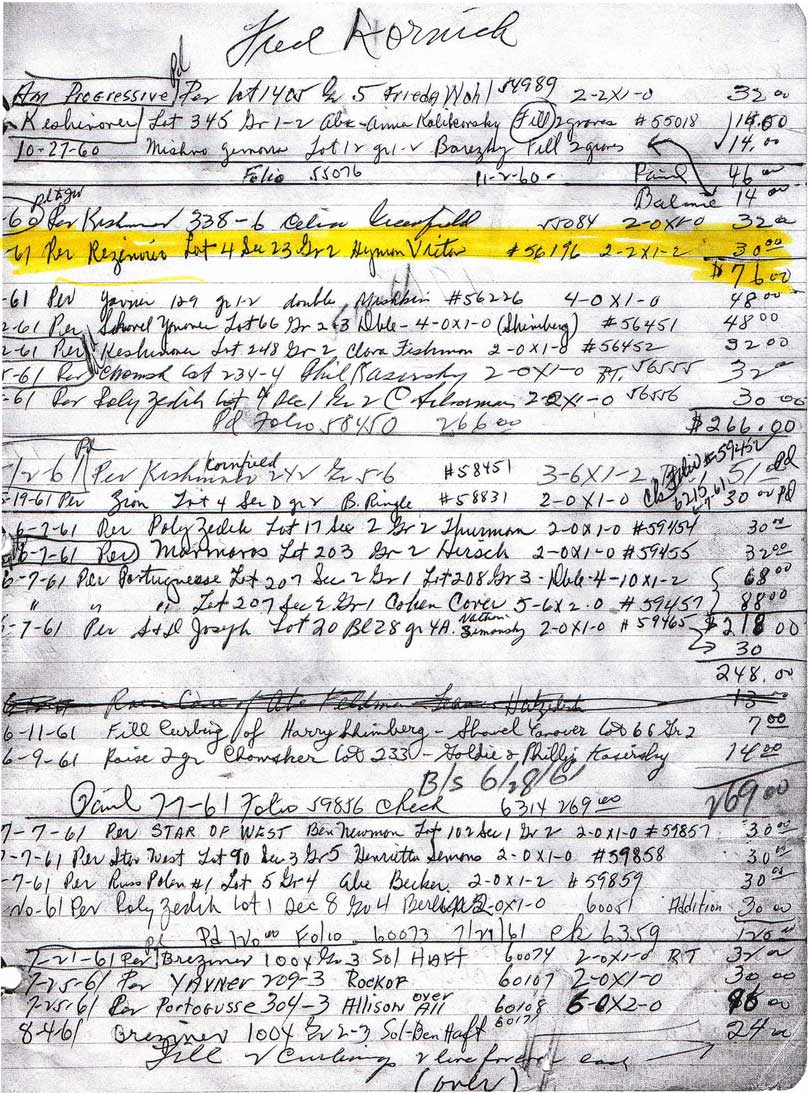 Fred Hornick
Pd
Am Progressive Per Lot 1405 Gr. 5 Frieda Wohl 54989 2-2X1-0 32 00
Keshinover Lot 345 Gr 1-2 Abe-Anna Kalikovsky Fill 2 graves #55018 14.00
10-27-60 Lot 12 gr 1-2 Barezky Fill 2 graves 14.00
Folio 55076 11-2-60- Paid 46 00
Balance 14 00
60 Per 338-6 Celia Greenfield 55084 2-0X1-0 32 00
-61 Per Lot 4 Sec 23 Gr 2 Hyman Victor #56196 2-2X1-2 30 00
$76 00
-61 Per 129 gr 1-2 double #56226 4-0X1-0 48 00
2-61 Per Lot 66 Gr 2-3 Dble-4-0X1-0 (Shimberg) #56451 48 00
2-61 Per Keshinover Lot 248 Gr 2 Clara Fishman 2-0X1-0 #56452 32 00
5-61 Per Chomsk Lot 234-4 Phil Kasirsky 2-0X1-0 RT. 56555 32 00
-61 Per Poly Zedek Lot 4 Sec 1 Gr 2 C 2-2X1-0 56556 30 00
Pd Folio 58450 266 00 $266.00
Pd
2-61 Per Kornfield 242 Gr 5-6 #58451 3-6X1-2 51 Pd
Ck Folio #59452
6215 6-7-61
5-19-61 Per Zion Lot 4 Sec D gr 2 B. Pringle #58831 2-0X1-0 30 00 Pd
6-7-61 Per Poly Zedek Lot 17 Sec 2 Gr 2 2-0X1-0 #59454 30 00
6-7-61 Per Marmaros Lot 203 Gr 2 Hirsch 2-0X1-0 #59455 32 00
6-7-61 Per Portuguesse Lot 207 Sec 2 Gr 1 Lot 208 Gr 3-Dble-4-10X1-2 68 00
" " " Lot 207 Sec 2 Gr 1 Cohen Cover 5-6X2.0 #59457 88 00
-7-61 Per Joseph Lot 20 Bl 28 gr 4A. Nathan Simansky 2-0X1-0 #59465 $218 00
30
248.00
13
6-11-61 Fill Curbing of Harry Shimberg - Shovel Yanover Lot 66 Gr 2 7 00
6-9-61 Raise 2 gr Chomsker Lot 233 - Goldie & Philly Kasirsky 14 00
B/s 6/28/61
Paid 7-7-61 Folio 59856 Check 6314 269 00 269 00
7-7-61 Per STAR OF WEST Ben Newman Lot 102 Sec 1 Gr 2 2-0X1-0 #59857 30 00
7-7-61 Per Star West Lot 90 Sec 3 Gr 5 Henrietta Semons 2-0X1-0 #59858 30 00
-7-61 Per Russ Polen #1 Lot 5 Gr 4 Abe Becker. 2-0X1-2 #59859 30 00
-61 Per Poly Zedek Lot 1 Sec 8 Gr 4 2-0X1-0 60051 Addition 30 00
Pd 120 00 Folio 60073 7/21/61 ck 6359 120 00
Pd
7-21-61 Per Breziner 1004 Gr 3 Sol HAFT 60074 2-0X1-0 RT 32 00
7-25-61 Per YAVNER 209-3 ROCKOF 60107 2-0X1-0 30 00
7-25-61 Per Portogusse 304-3 Allison over All 60108 6-0X2-0 86 00
8-4-61 Breziner 1004 Gr 2-3 Sol-Ben Haft 60171 24 00
Fill 2 Curbings 2 each
(over)